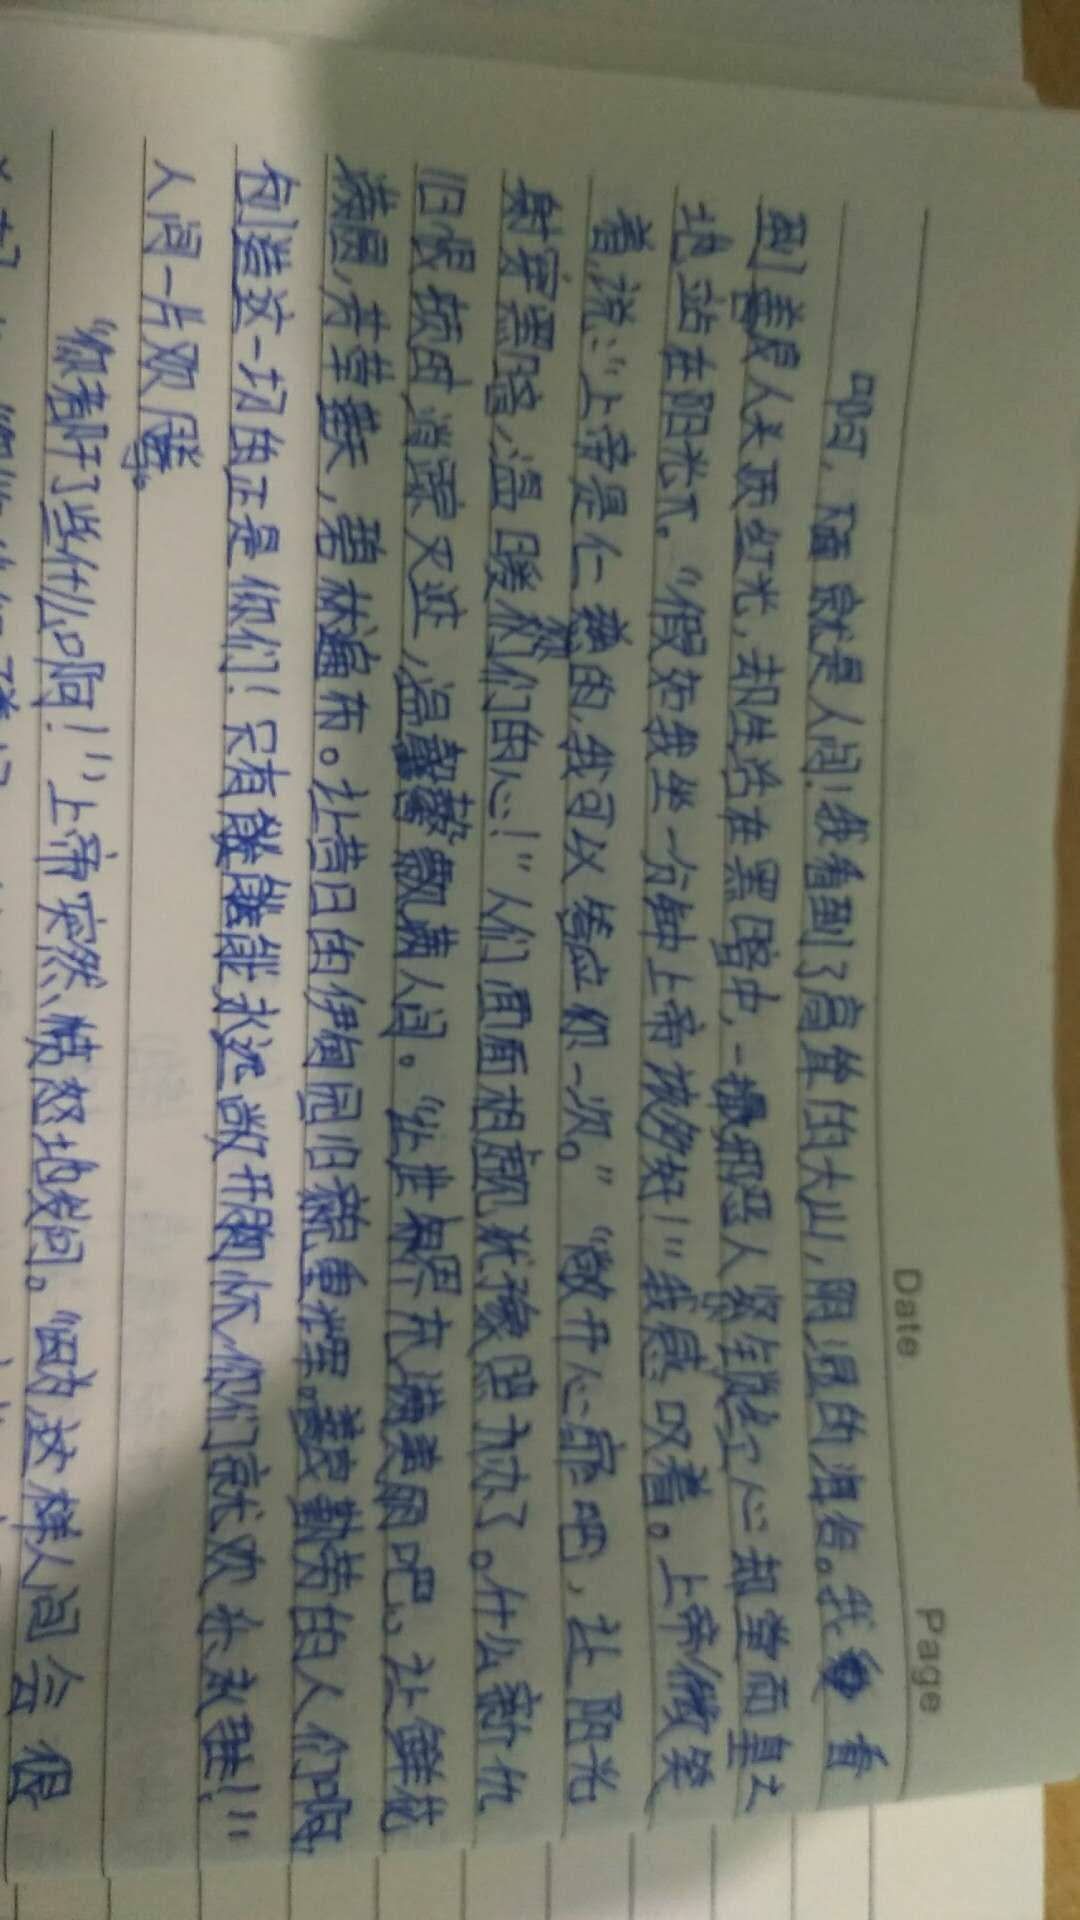 Date Page
啊,随就是人间!我看到了高耸的大山,阴湿的海角。我看
到善良人头顶红光,却生活在黑暗中,一撮邪恶人紧锁空心却堂而皇之
地站在阳光下。“假如我坐一分钟上帝该多好!”我感叹着。上帝微笑
着说:“上帝是仁慈的,我可以答应你一次。”“敞开心扉吧,让阳光
射穿黑暗,温暖我们的心!”人们面面相觑犹豫照办了。什么新仇
旧恨顿时消弭灭迹,温馨飘满人间。“让世界充满美丽吧,让鲜花
满园,芳草萋萋,碧林遍布。让昔日的伊甸园旧貌重辉。善良勤劳的人们啊
创造这一切的正是你们!只有
能永远敞开胸怀,你们就欢乐永驻!”
人间一片欢腾。
“你都干了些什么啊!”上帝突然愤怒地质问。“因为这样人间会很